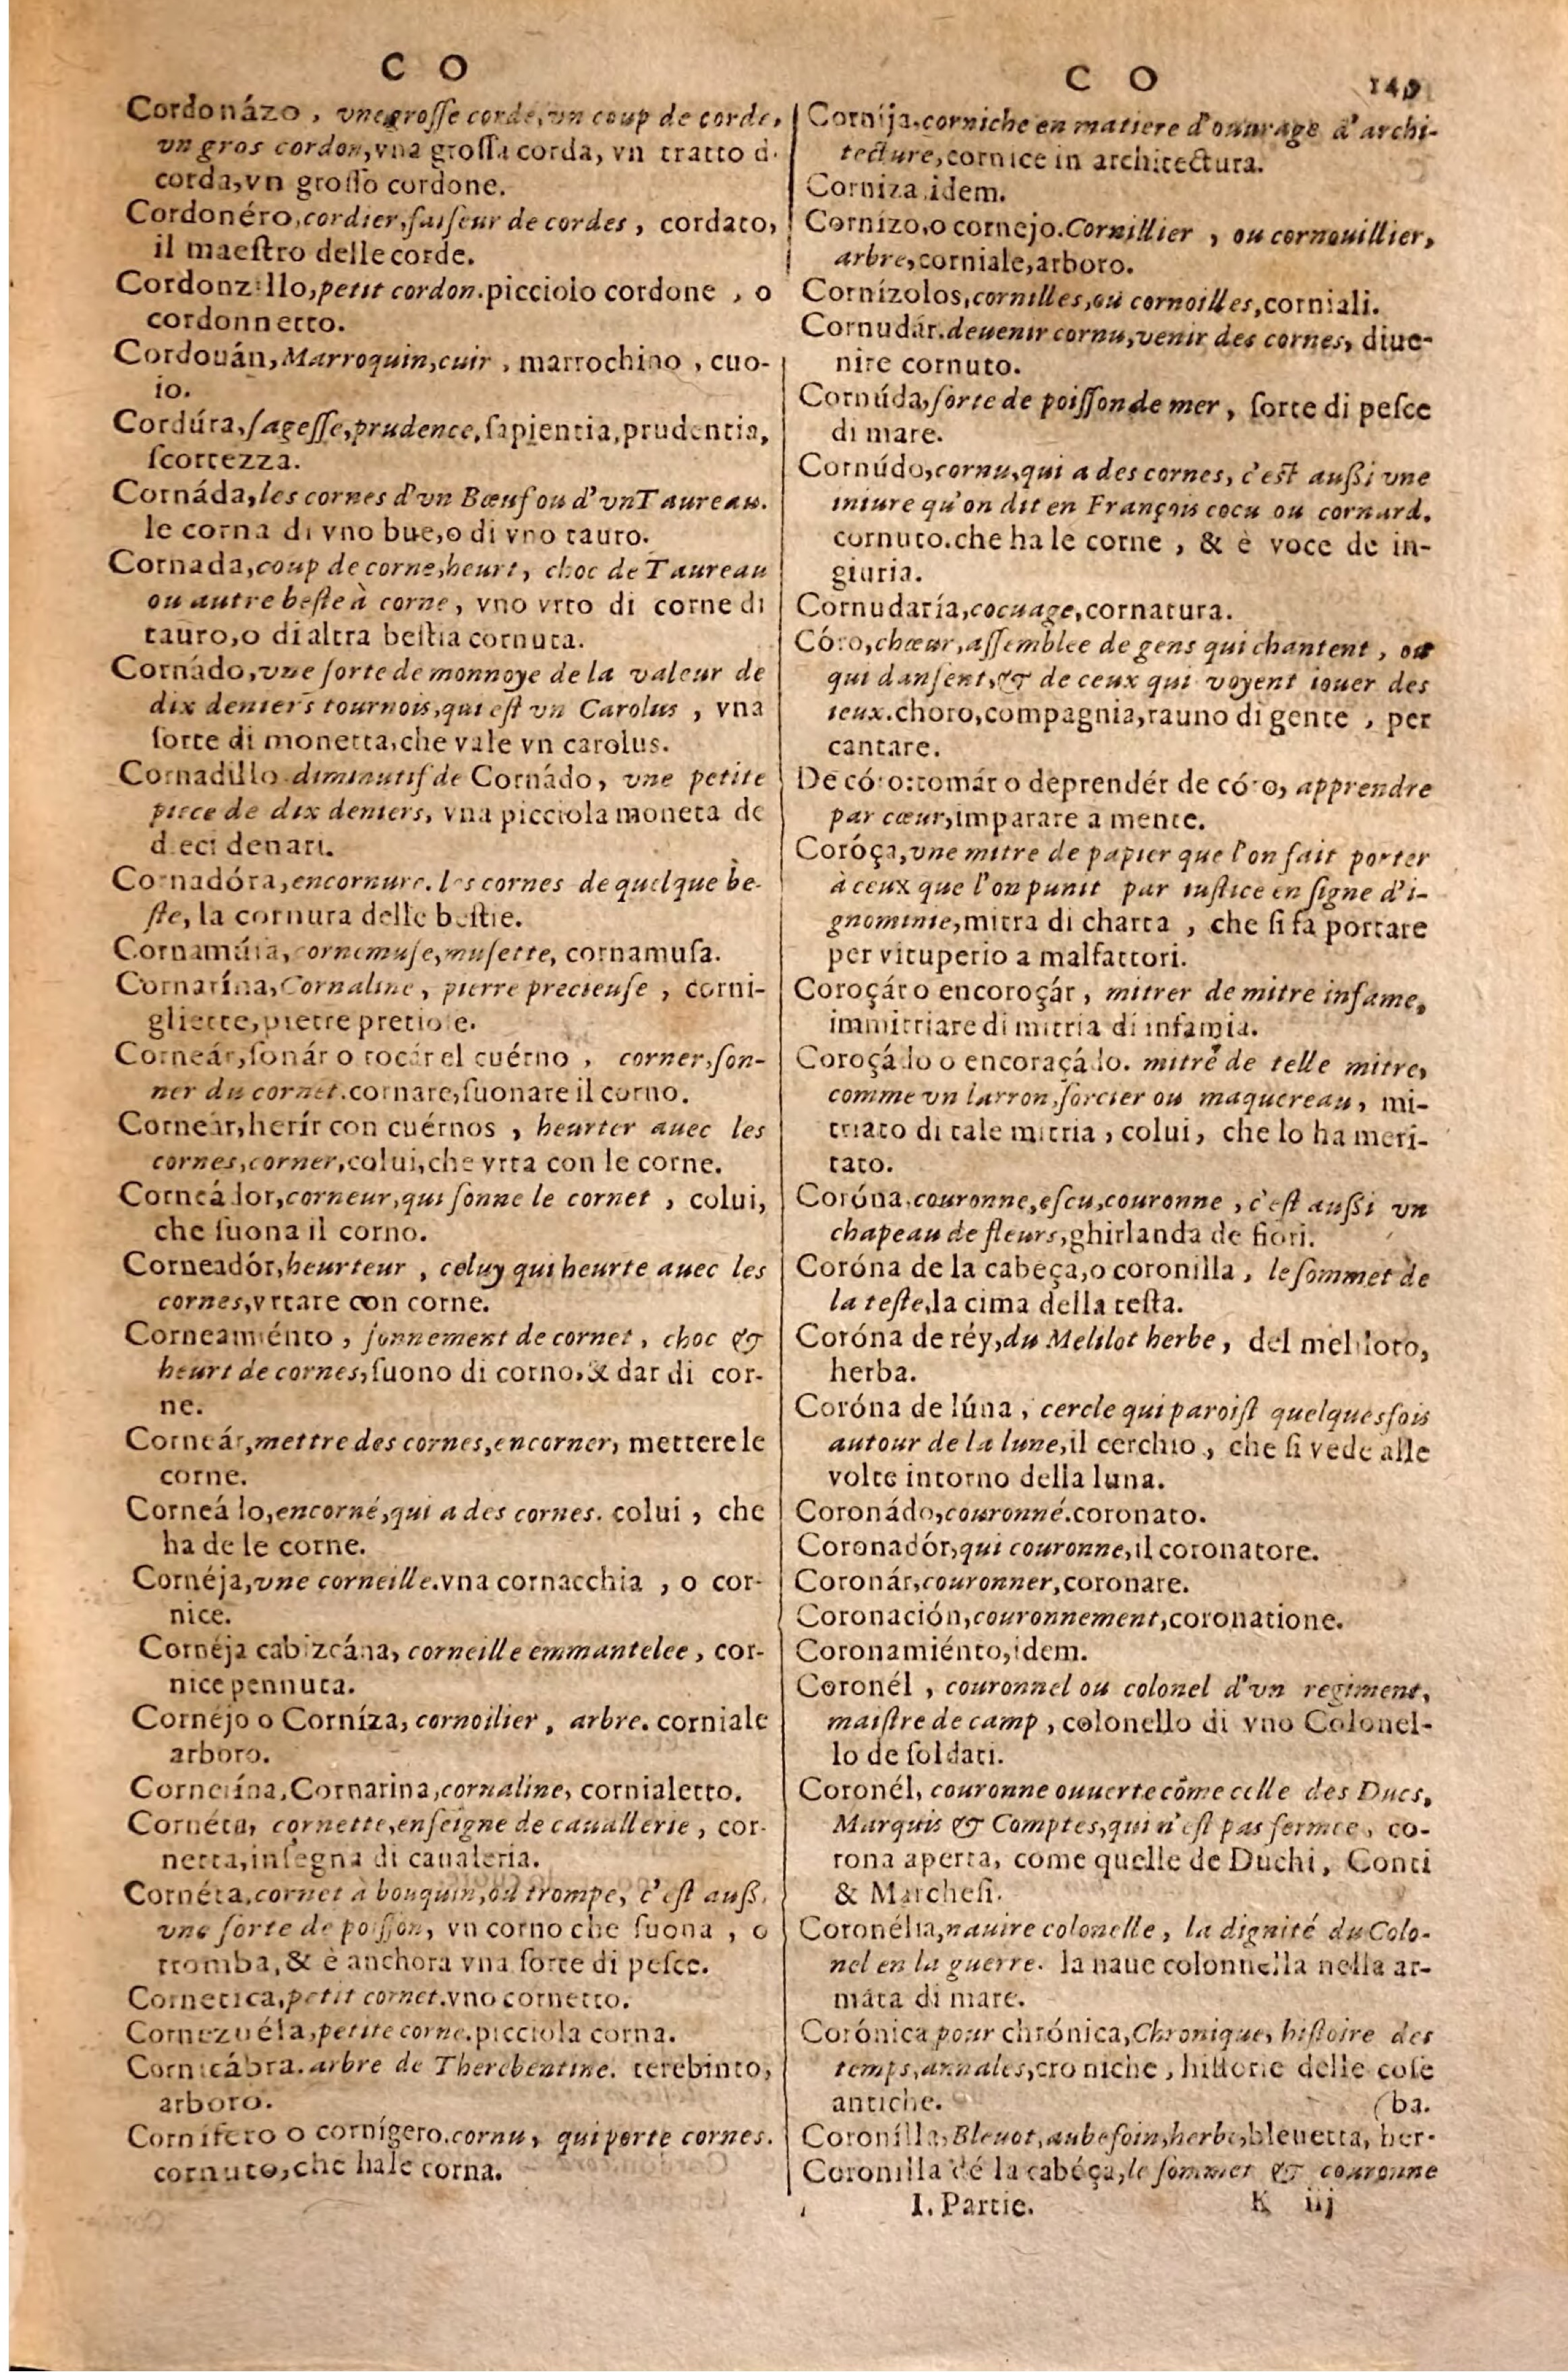 C O
Cordonázo, vne grosse corde, vn coup de corde,
vn gros cordon, vna grossa corda, vn tratto d.
corda, vn grosso cordone.
Cordonéro, cordier, faiseur de cordes, cordaro,
il maestro delle corde.
Cordonzillo, petit cordon. picciolo cordone, o
cordonnetto.
Cordouán, Marroquin, cuir, marrochino, cuo-
io.
Cordúra, sagesse, prudence, sapientia, prudentia,
scortezza.
Cornáda, les cornes d'vn Bœuf ou d'vn Taureau.
le corna di vno bue, o di vno tauro.
Cornada, coup de corne, heurt, choc de Taureau
ou autre beste à corne, vno vrto di corne di
tauro, o di altra bestia cornuta.
Cornádo, vne sorte de monnoye de la valeur de
dix deniers tournois, qui est vn Carolus, vna
sorte di monetta, che vale vn carolus.
Cornadillo diminutif de Cornádo, vne petite
piece de dix deniers, vna picciola moneta de
dieci denari.
Cornadóra, encornure. les cornes de quelque be-
ste, la cornura delle bestie.
Cornamúsa, cornemuse, musette, cornamusa.
Cornarína, Cornaline, pierre precieuse, corni-
gliette, pietre pretiose.
Corneár, sonár o tocár el cuérno, corner, son-
ner du cornet. cornare, suonare il corno.
Corneár, herír con cuérnos, heurter auec les
cornes, corner, colui, che vrta con le corne.
Corneádor, corneur, qui sonne le cornet, colui,
che suona il corno.
Corneadór, heurteur, celuy qui heurte auec les
cornes, vrtare con corne.
Corneamiénto, sonnement de cornet, choc &
heurt de cornes, suono di corno, & dar di cor-
ne.
Corneár, mettre des cornes, encorner, mettere le
corne.
Corneádo, encorné, qui a des cornes. colui, che
ha de le corne.
Cornéja, vne corneille. vna cornacchia, o cor-
nice.
Cornéja cabizcána, corneille emmantelee, cor-
nice pennuta.
Cornéjo o Corníza, cornoilier, arbre. corniale
arboro.
Cornerína, Cornarina, cornaline, cornialetto.
Cornéta, cornette, enseigne de cauallerie, cor-
netta, insegna di caualeria.
Cornéta, cornet a bouquin, ou trompe, c'est aussi
vne sorte de poisson, vn corno che suona, o
tromba, & è anchora vna sorte di pesce.
Cornetica, petit cornet. vno cornetto.
Cornezuéla, petite corne. picciola corna.
Cornicábra. arbre de Therebentine. terebinto,
arboro.
Cornífero o cornígero. cornu, qui porte cornes.
cornuto, che ha le corna.
C O 149
Corníja, corniche en matiere d'ouurage d'archi-
tecture, cornice in architectura.
Corniza, idem.
Cornízo, o cornejo. Cornillier, ou cornouillier,
arbre, corniale, arboro.
Cornízolos, cornilles, ou cornoilles, corniali.
Cornudár. deuenir cornu, venir des cornes, diue-
nire cornuto.
Cornúda, sorte de poisson de mer, sorte di pesce
di mare.
Cornúdo, cornu, qui a des cornes, c'est aussi vne
iniure qu'on dit en François cocu ou cornard.
cornuto. che ha le corne, & è voce de in-
giuria.
Cornudaría, cocuage, cornatura.
Córo, chœur, assemblee de gens qui chantent, ou
qui dansent, & de ceux qui voyent iouer des
ieux. choro, compagnia, rauno di gente, per
cantare.
De córo: tomár o deprendér de córo, apprendre
par cœur, imparare a mente.
Coróça, vne mitre de papier que l'on fait porter
à ceux que l'on punit par iustice en signe d'i-
gnominie, mitra di charta, che si fa portare
per vituperio a malfattori.
Coroçár o encoroçár, mitrer de mitre infame,
immitriare di mitria di infamia.
Coroçádo o encoraçádo. mitré de telle mitre,
comme vn larron, sorcier ou maquereau, mi-
triato di tale mitria, colui, che lo ha meri-
tato.
Coróna, couronne, escu, couronne, c'est aussi vn
chapeau de fleurs, ghirlanda de fiori.
Coróna de la cabeça, o coronilla, le sommet de
la teste, la cima della testa.
Coróna de réy, du Melilot herbe, del meliloto,
herba.
Coróna de lúna, cercle qui paroist quelquesfois
autour de la lune, il cerchio, che si vede alle
volte intorno della luna.
Coronádo, couronné. coronato.
Coronadór, qui couronne, il coronatore.
Coronár, couronner, coronare.
Coronación, couronnement, coronatione.
Coronamiénto, idem.
Coronél, couronnel ou colonel d'vn regiment,
maistre de camp, colonello di vno Colonel-
lo de soldati.
Coronél, couronne ouuerte cõme celle des Ducs,
Marquis & Comptes, qui n'est pas fermee, co-
rona aperta, come quelle de Duchi, Conti
& Marchesi.
Coronélia, nauire colonelle, la dignité du Colo-
nel en la guerre. la naue colonnella nella ar-
mata di mare.
Corónica pour chrónica, Chronique, histoire des
temps, annales, croniche, historie delle cose
antiche. (ba.
Coronílla, Bleuot, aubefoin, herbe, bleuetta, her-
Coronilla dé la cabéça, le sommet & couronne
I. Partie. K iij